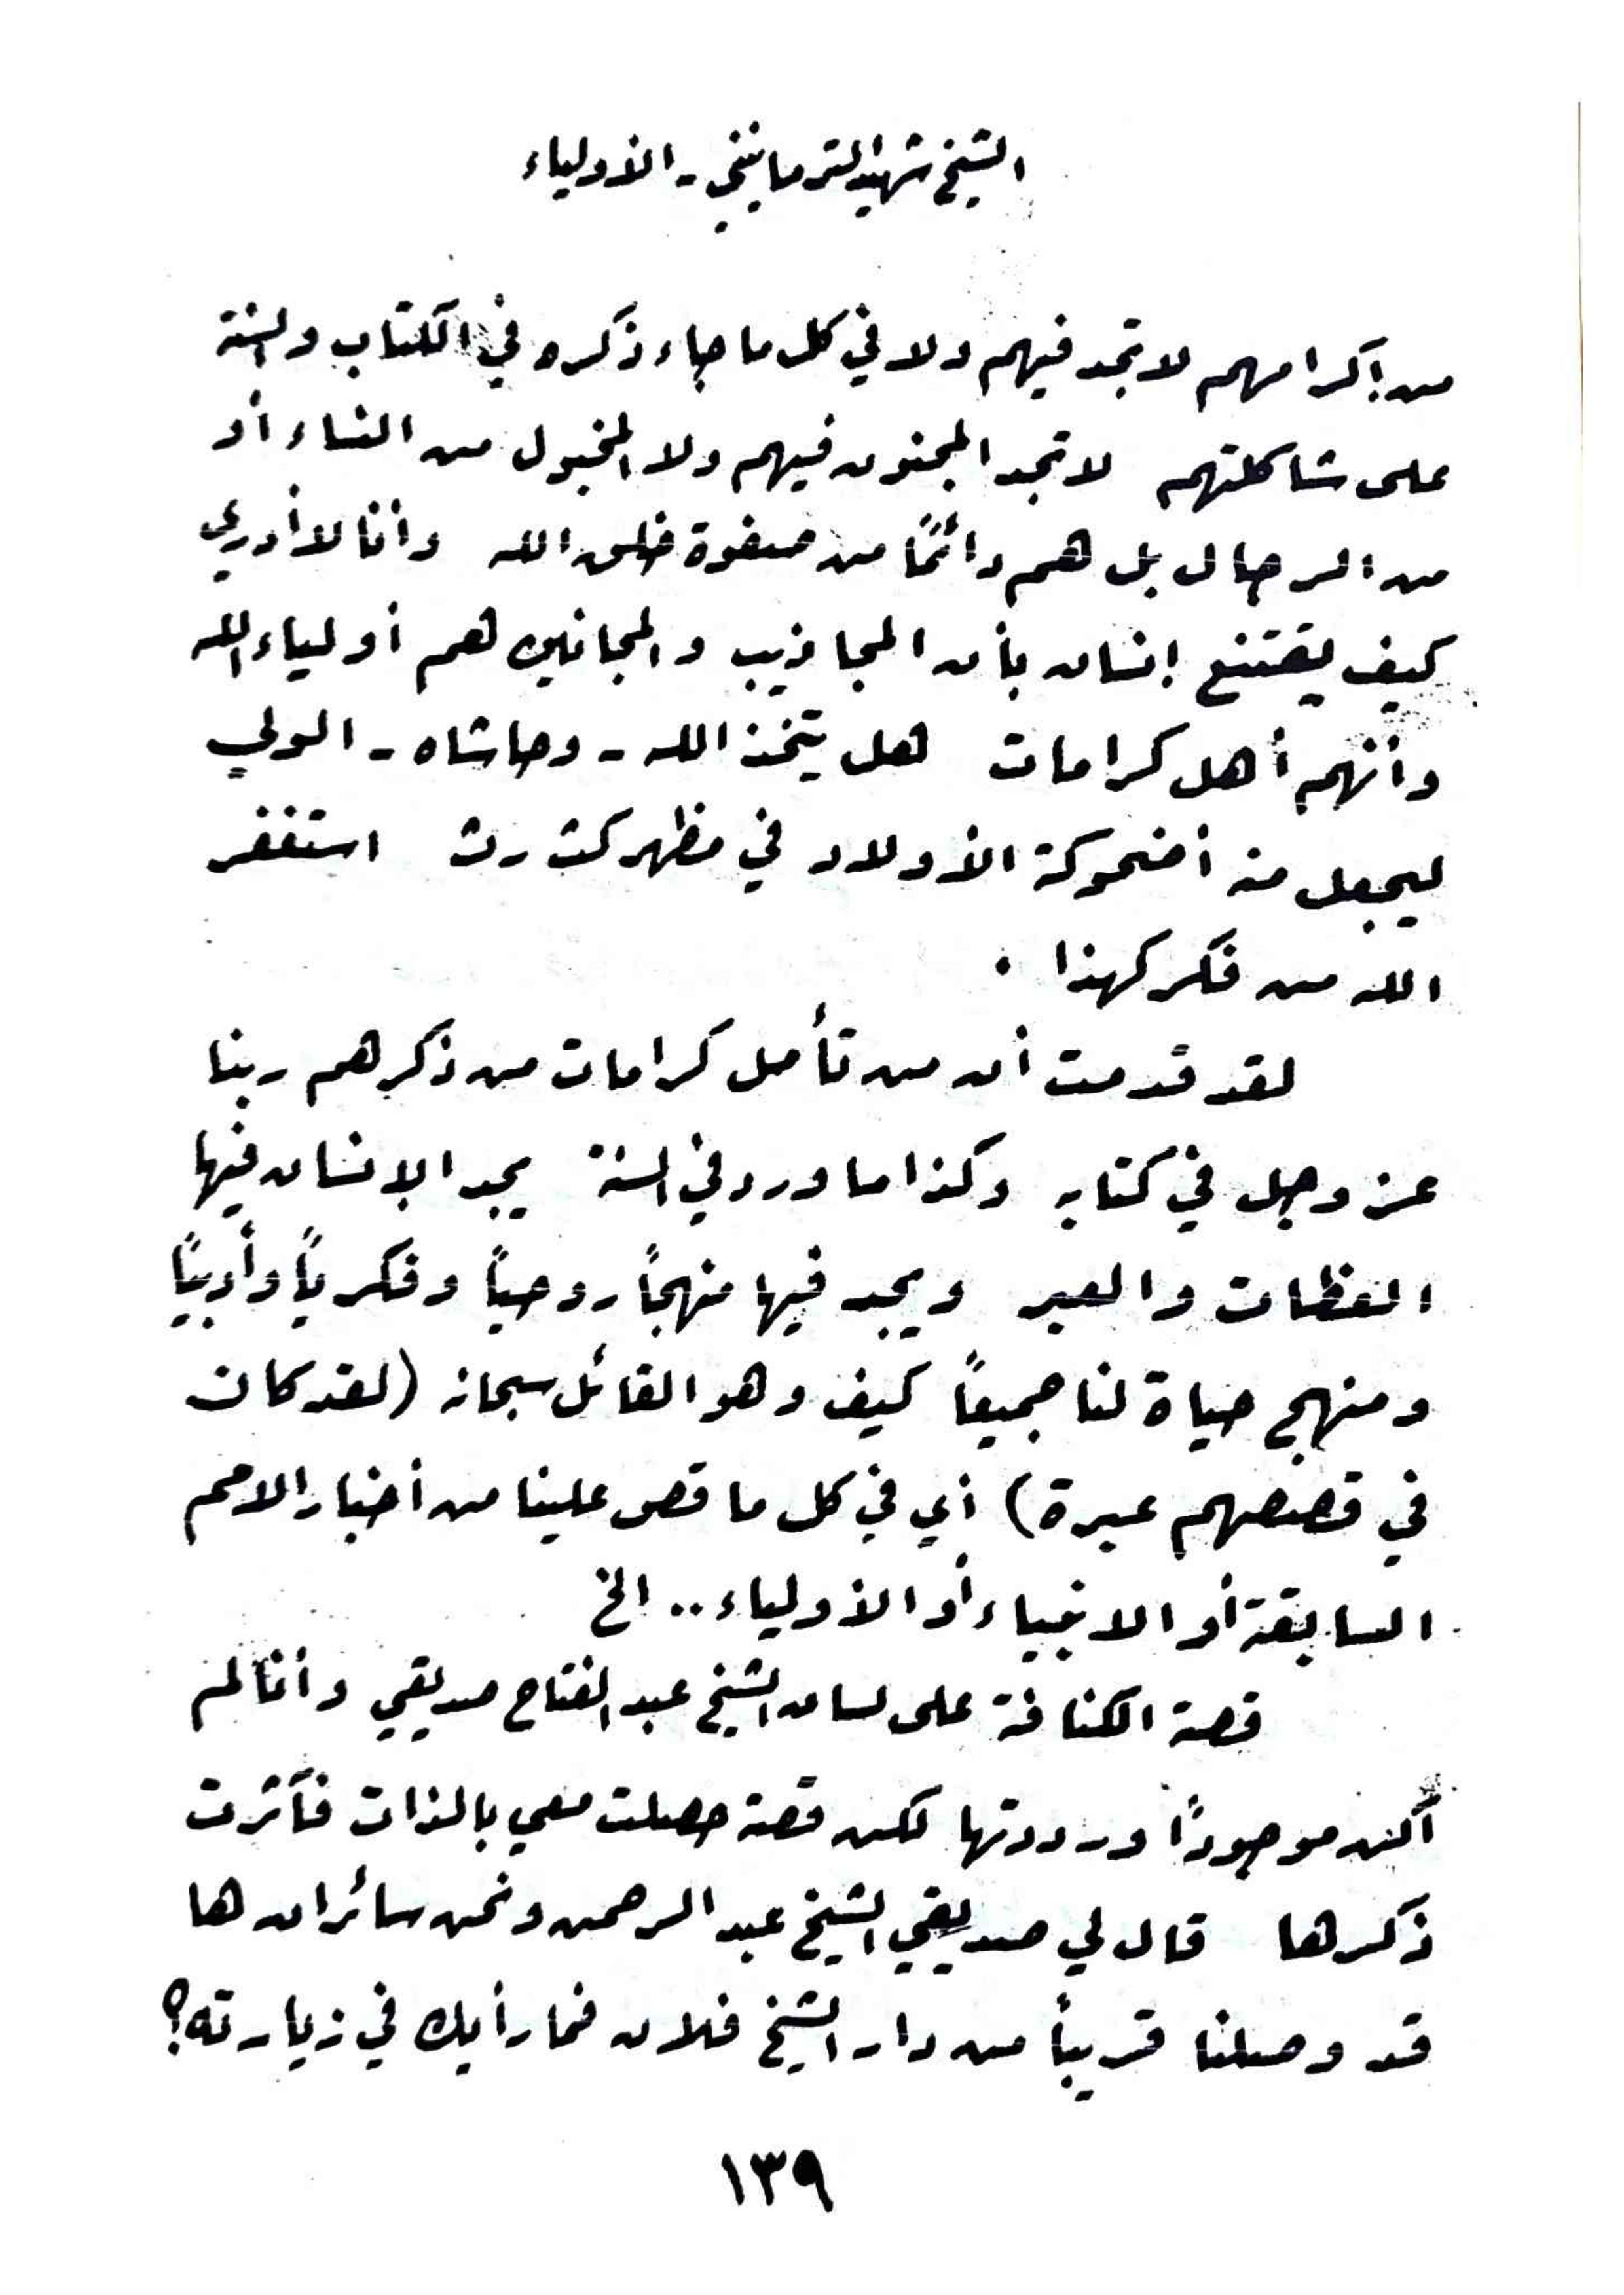 الشيخ شهيد الترمانيني - الأولياء
من إكرامهم لا تجد فيهم ولا في كل ما جاء ذكره في الكتاب والسنة
على شاكلتهم لا تجد المجنون فيهم ولا المخبول من النساء أو
من الرجال بل هم دائمًا من صفوة خلق الله وأنا لا أدري
كيف يقتنع إنسان بأن المجاذيب والمجانين هم أولياء الله
وأنهم أهل كرامات هل يتخذ الله - وحاشاه - الولي
ليجعل منه أضحوكة الأولاد في مظهر كث رث استغفر
الله من فكر كهذا .
لقد قدمت أن من تأمل كرامات من ذكرهم ربنا
عز وجل في كتابه وكذا ما ورد في السنة يجد الإنسان فيها
العظات والعبر ويجد فيها منهجاً روحياً وفكرياً وأدبياً
ومنهج حياة لنا جميعاً كيف وهو القائل سبحانه (لقد كان
في قصصهم عبرة) أي في كل ما قص علينا من أخبار الامم
السابقة أو الانبياء أو الأولياء .. الخ
قصة الكنافة على لسان الشيخ عبد الفتاح صديقي وأنا لم
أكن موجودًا ورددتها لكن قصة حصلت معي بالذات فآثرت
ذكرها قال لي صديقي الشيخ عبد الرحمن ونحن سائران ها
قد وصلنا قريباً من دار الشيخ فلان فما رأيك في زيارته؟
١٣٩